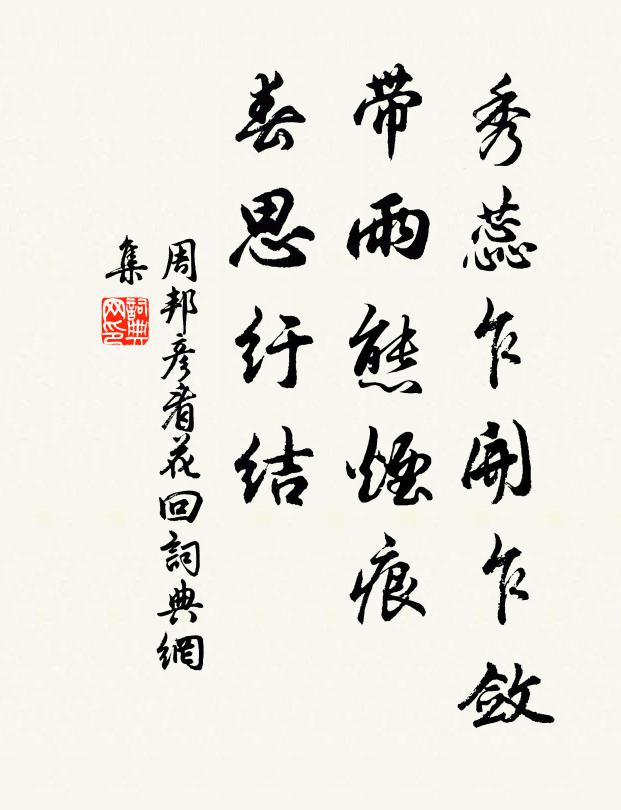 秀蕊乍開乍斂
帶雨態煙痕
春思紆結
周邦彥看花回詞典網
集
詞典
网印